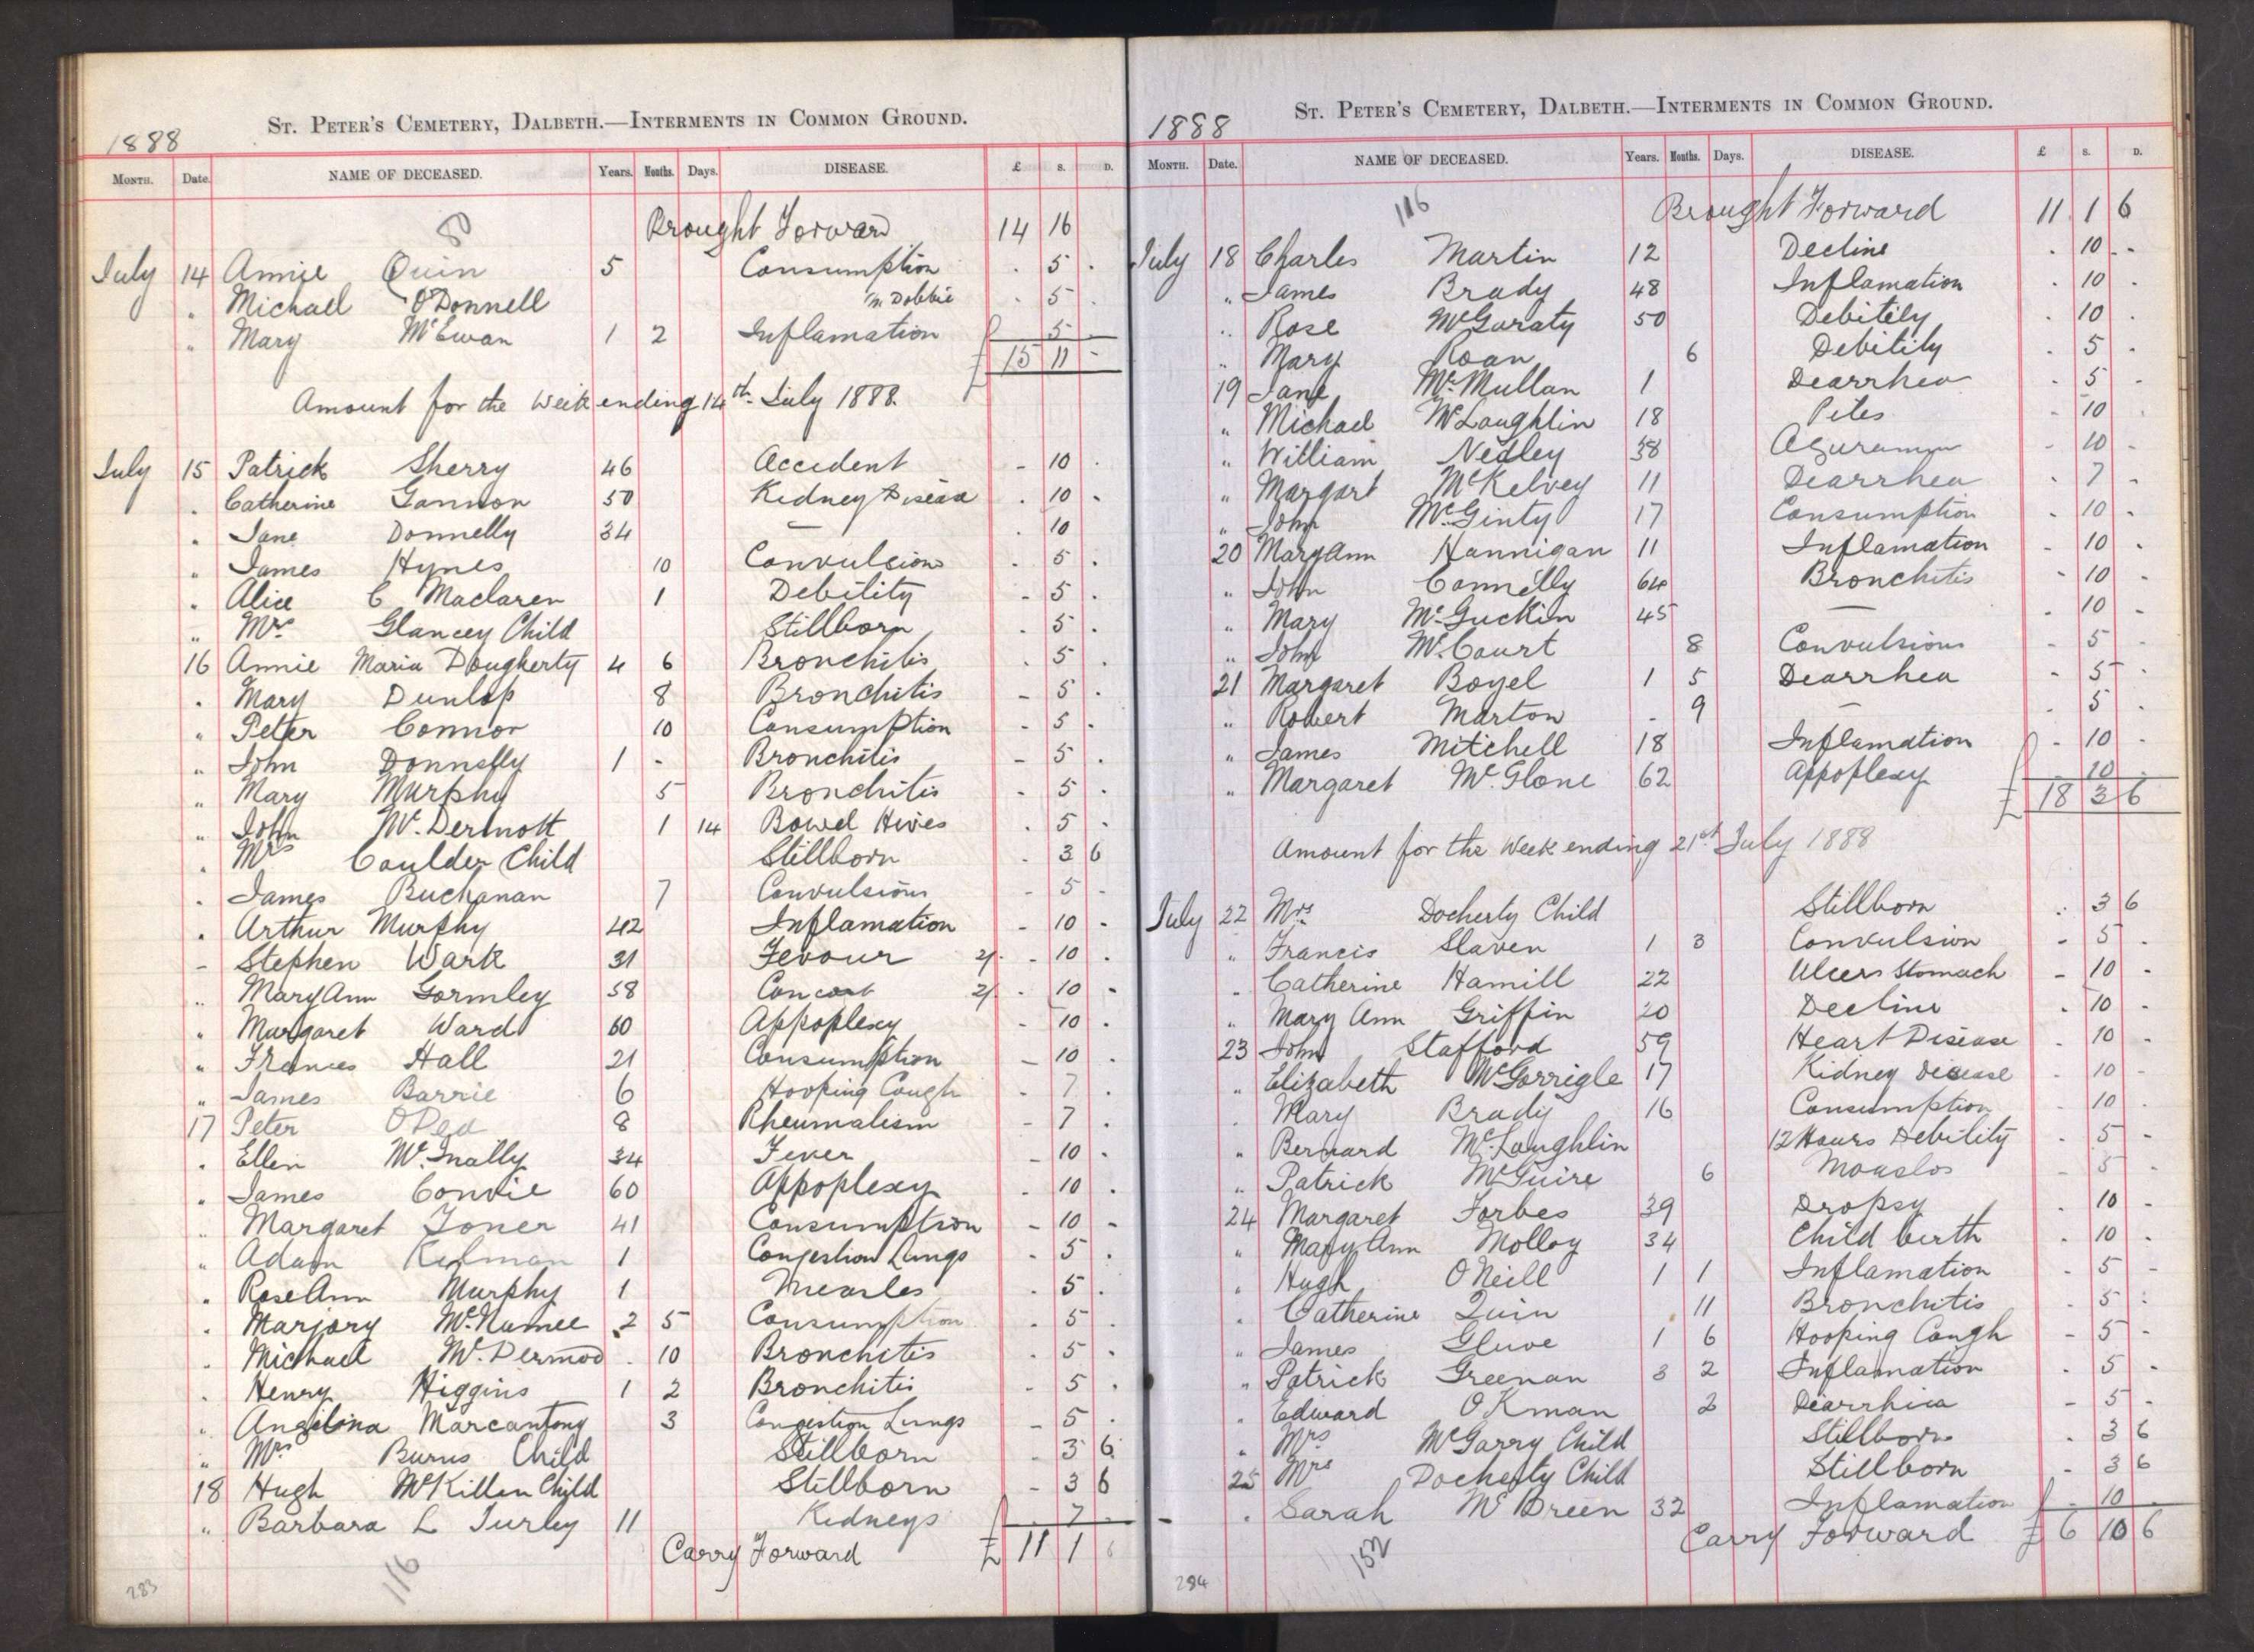 1888
ST. PETER'S CEMETERY, DALBETH.—INTERMENTS IN COMMON GROUND.
MONTH. Date. NAME OF DECEASED. Years. Months. Days. DISEASE. £ S. D.
80 Brought Forward 14 16
July 14 Annie Quin 5 Consumption . 5 .
" Michael O'Donnell Dobbie . 5 .
" Mary McEwan 1 2 Inflamation 5 -
£ 15 11 -
Amount for the Week ending 14th July 1888.
July 15 Patrick Sherry 46 Accident - 10 .
" Catherine Gannon 50 Kidney Disease . 10 .
" Jane Donnelly 34 — . 10
" James Hynes 10 Convulsions . 5 .
" Alice C Maclaren 1 Debility - 5 .
" Mrs Glancey Child Stillborn . 5 .
16 Annie Maria Dougherty 4 6 Bronchitis . 5 .
" Mary Dunlop 8 Bronchitis - 5 .
" Peter Connor 10 Consumption - 5 .
" John Donnelly 1 - Bronchitis - 5 .
" Mary Murphy 5 Bronchitis - 5 .
" John Mc.Dermott 1 14 Bowel Hives . 5 -
" Mrs Coulder Child Stillborn - 3 6
" James Buchanan 7 Convulsions - 5 -
" Arthur Murphy 42 Inflamation - 10 -
- Stephen Wark 31 Fevour 2/. - 10 .
" Mary Ann Gormley 58 2/. . 10 -
" Margaret Ward 60 Appoplexy - 10 .
" Frances Hall 21 Consumption - 10 .
" James Barrie 6 Hooping Cough - 7 .
17 Peter ODea 8 Rheumatism - 7 .
" Ellen Mc.Inally 34 Fever - 10 .
" James Convie 60 Appoplexy . 10 .
" Margaret Toner 41 Consumption - 10 -
" Adam 1 Congestion Lungs . 5 .
" Rose Ann Murphy 1 Measles . 5 .
" Marjory Mc.Namee 2 5 Consumption . 5 .
" Michael Mc.Dermod . 10 Bronchitis . 5 .
" Henry Higgins 1 2 Bronchitis - 5 .
" Angelina Marcantony 3 Congestion Lungs - 5 .
" Mrs Burns Child Stillborn - 3 6
18 Hugh McKillen Child Stillborn - 3 6
" Barbara L Turley 11 Kidneys . 7 .
Carry Forward £ 11 1 6
116
283
1888
ST. PETER'S CEMETERY, DALBETH.—INTERMENTS IN COMMON GROUND.
MONTH. Date. NAME OF DECEASED. Years. Months. Days. DISEASE. £ S. D.
116 Brought Forward 11 1 6
July 18 Charles Martin 12 Decline . 10 -
" James Brady 48 Inflamation . 10 .
" Rose McGuraty 50 Debitily . 10 .
" Mary Roan 6 Debility . 5 .
19 Jane Mc.Mullan 1 Dearrhea . 5 -
" Michael McLaughlin 18 Piles - 10 .
" William Nedley 38 - 10 -
" Margart McKelvey 11 Dearrhea . 7 -
" John McGinty 17 Consumption . 10 -
20 Mary Ann Hannigan 11 Inflamation - 10 .
" John Connelly 64 Bronchitis - 10 .
" Mary McGuckin 45 — . 10 -
" John Mc.Court 8 Convulsions - 5 -
21 Margaret Boyel 1 5 Dearrhea - 5 .
" Robert Marton - 9 — - 5 .
" James Mitchell 18 Inflamation - 10 -
" Margaret Mc.Glone 62 Appoplexy . 10 .
£ 18 3 6
Amount for the Week ending 21st July 1888
July 22 Mrs Docherty Child Stillborn . 3 6
" Francis Slaven 1 3 Convulsion - 5 .
" Catherine Hamill 22 Ulcers Stomach - 10 -
" Mary Ann Griffin 20 Decline . 10 -
23 John Stafford 59 Heart Disease . 10 -
" Elizabeth McGorrigle 17 Kidney Disease - 10 -
" Mary Brady 16 Consumption - 10 .
" Bernard Mc.Laughlin 12 Hours Debility . 5 -
" Patrick McGuire 6 - 5 -
24 Margaret Forbes 39 Dropsy . 10 -
" Mary Ann Molloy 34 Child birth . 10 .
" Hugh ONeill 1 1 Inflamation . 5 -
" Catherine Quin 11 Bronchitis . 5 .
" James Gluve 1 6 Hooping Cough - 5 -
" Patrick Greenan 3 2 Inflamation . 5 -
" Edward OKman 2 Diarrhiea - 5 -
" Mrs McGarry Child Stillborn . 3 6
25 Mrs Docherty Child Stillborn - 3 6
" Sarah McBreen 32 Inflamation . 10 -
Carry Forward £ 6 10 6
152
284